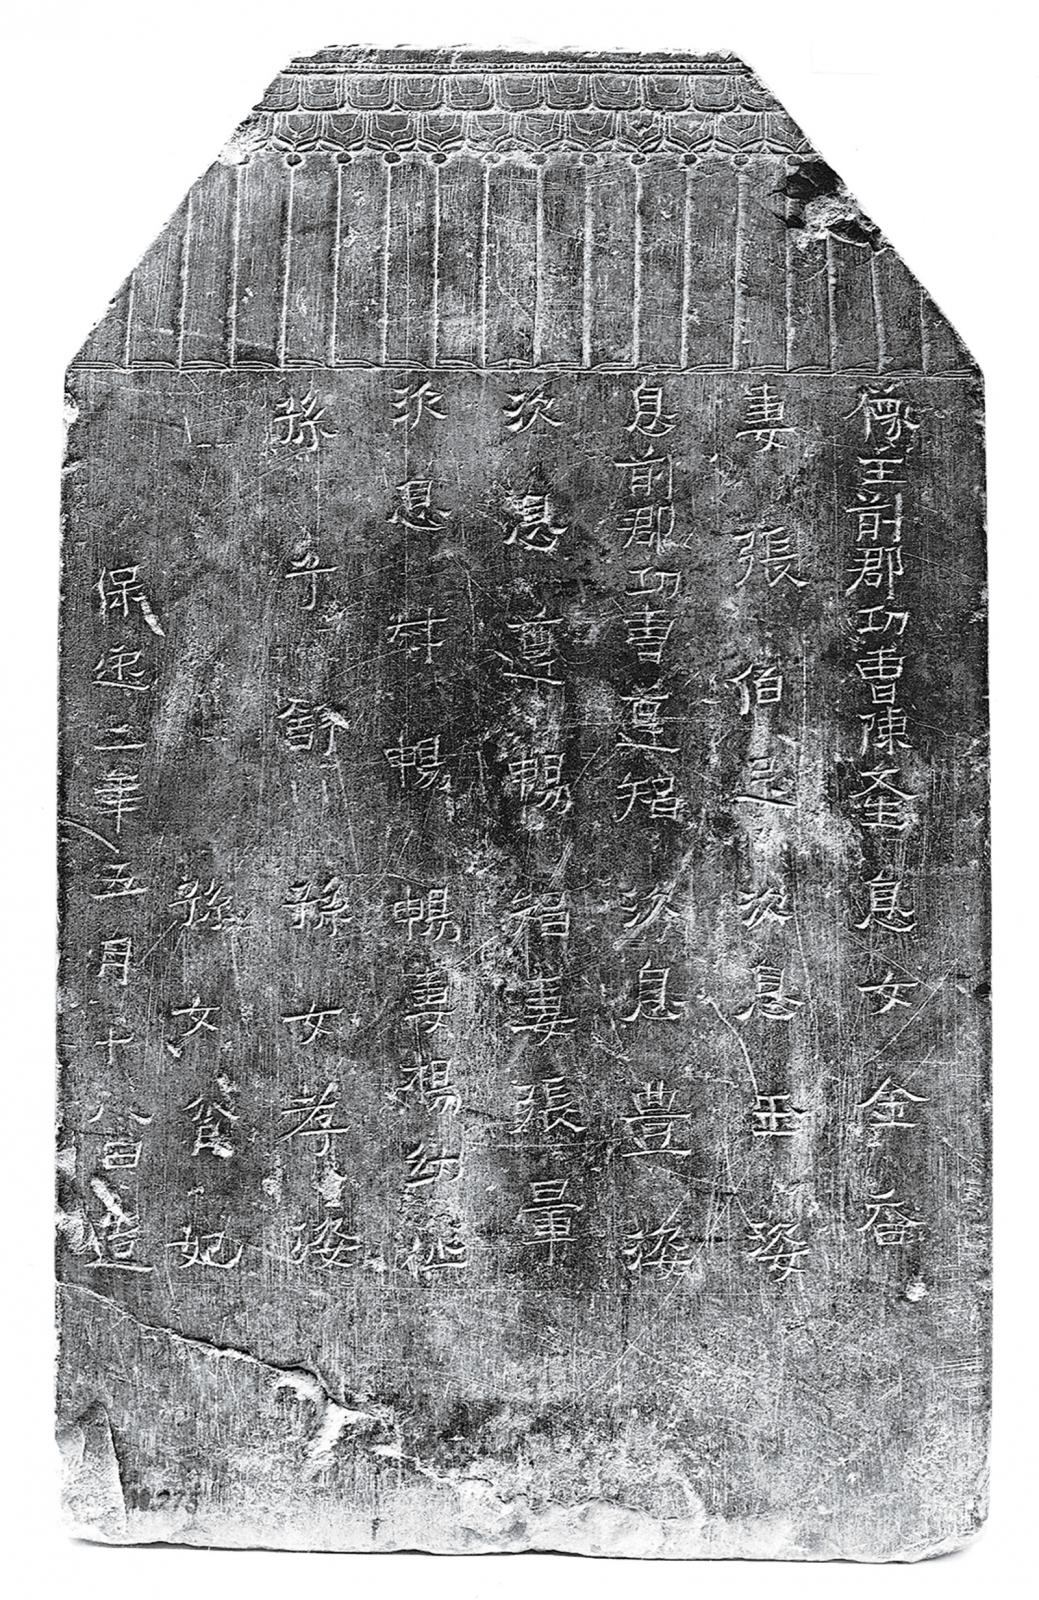 像主前郡功曹陳文息女金
妻張伯次息玉姿
息前郡功曹遵智次息豊姿
次息遵暢智妻張暈
次息暢暢妻楊幼
孫子舒孫女孝姿
孫女妃
保定二年五月十八日造